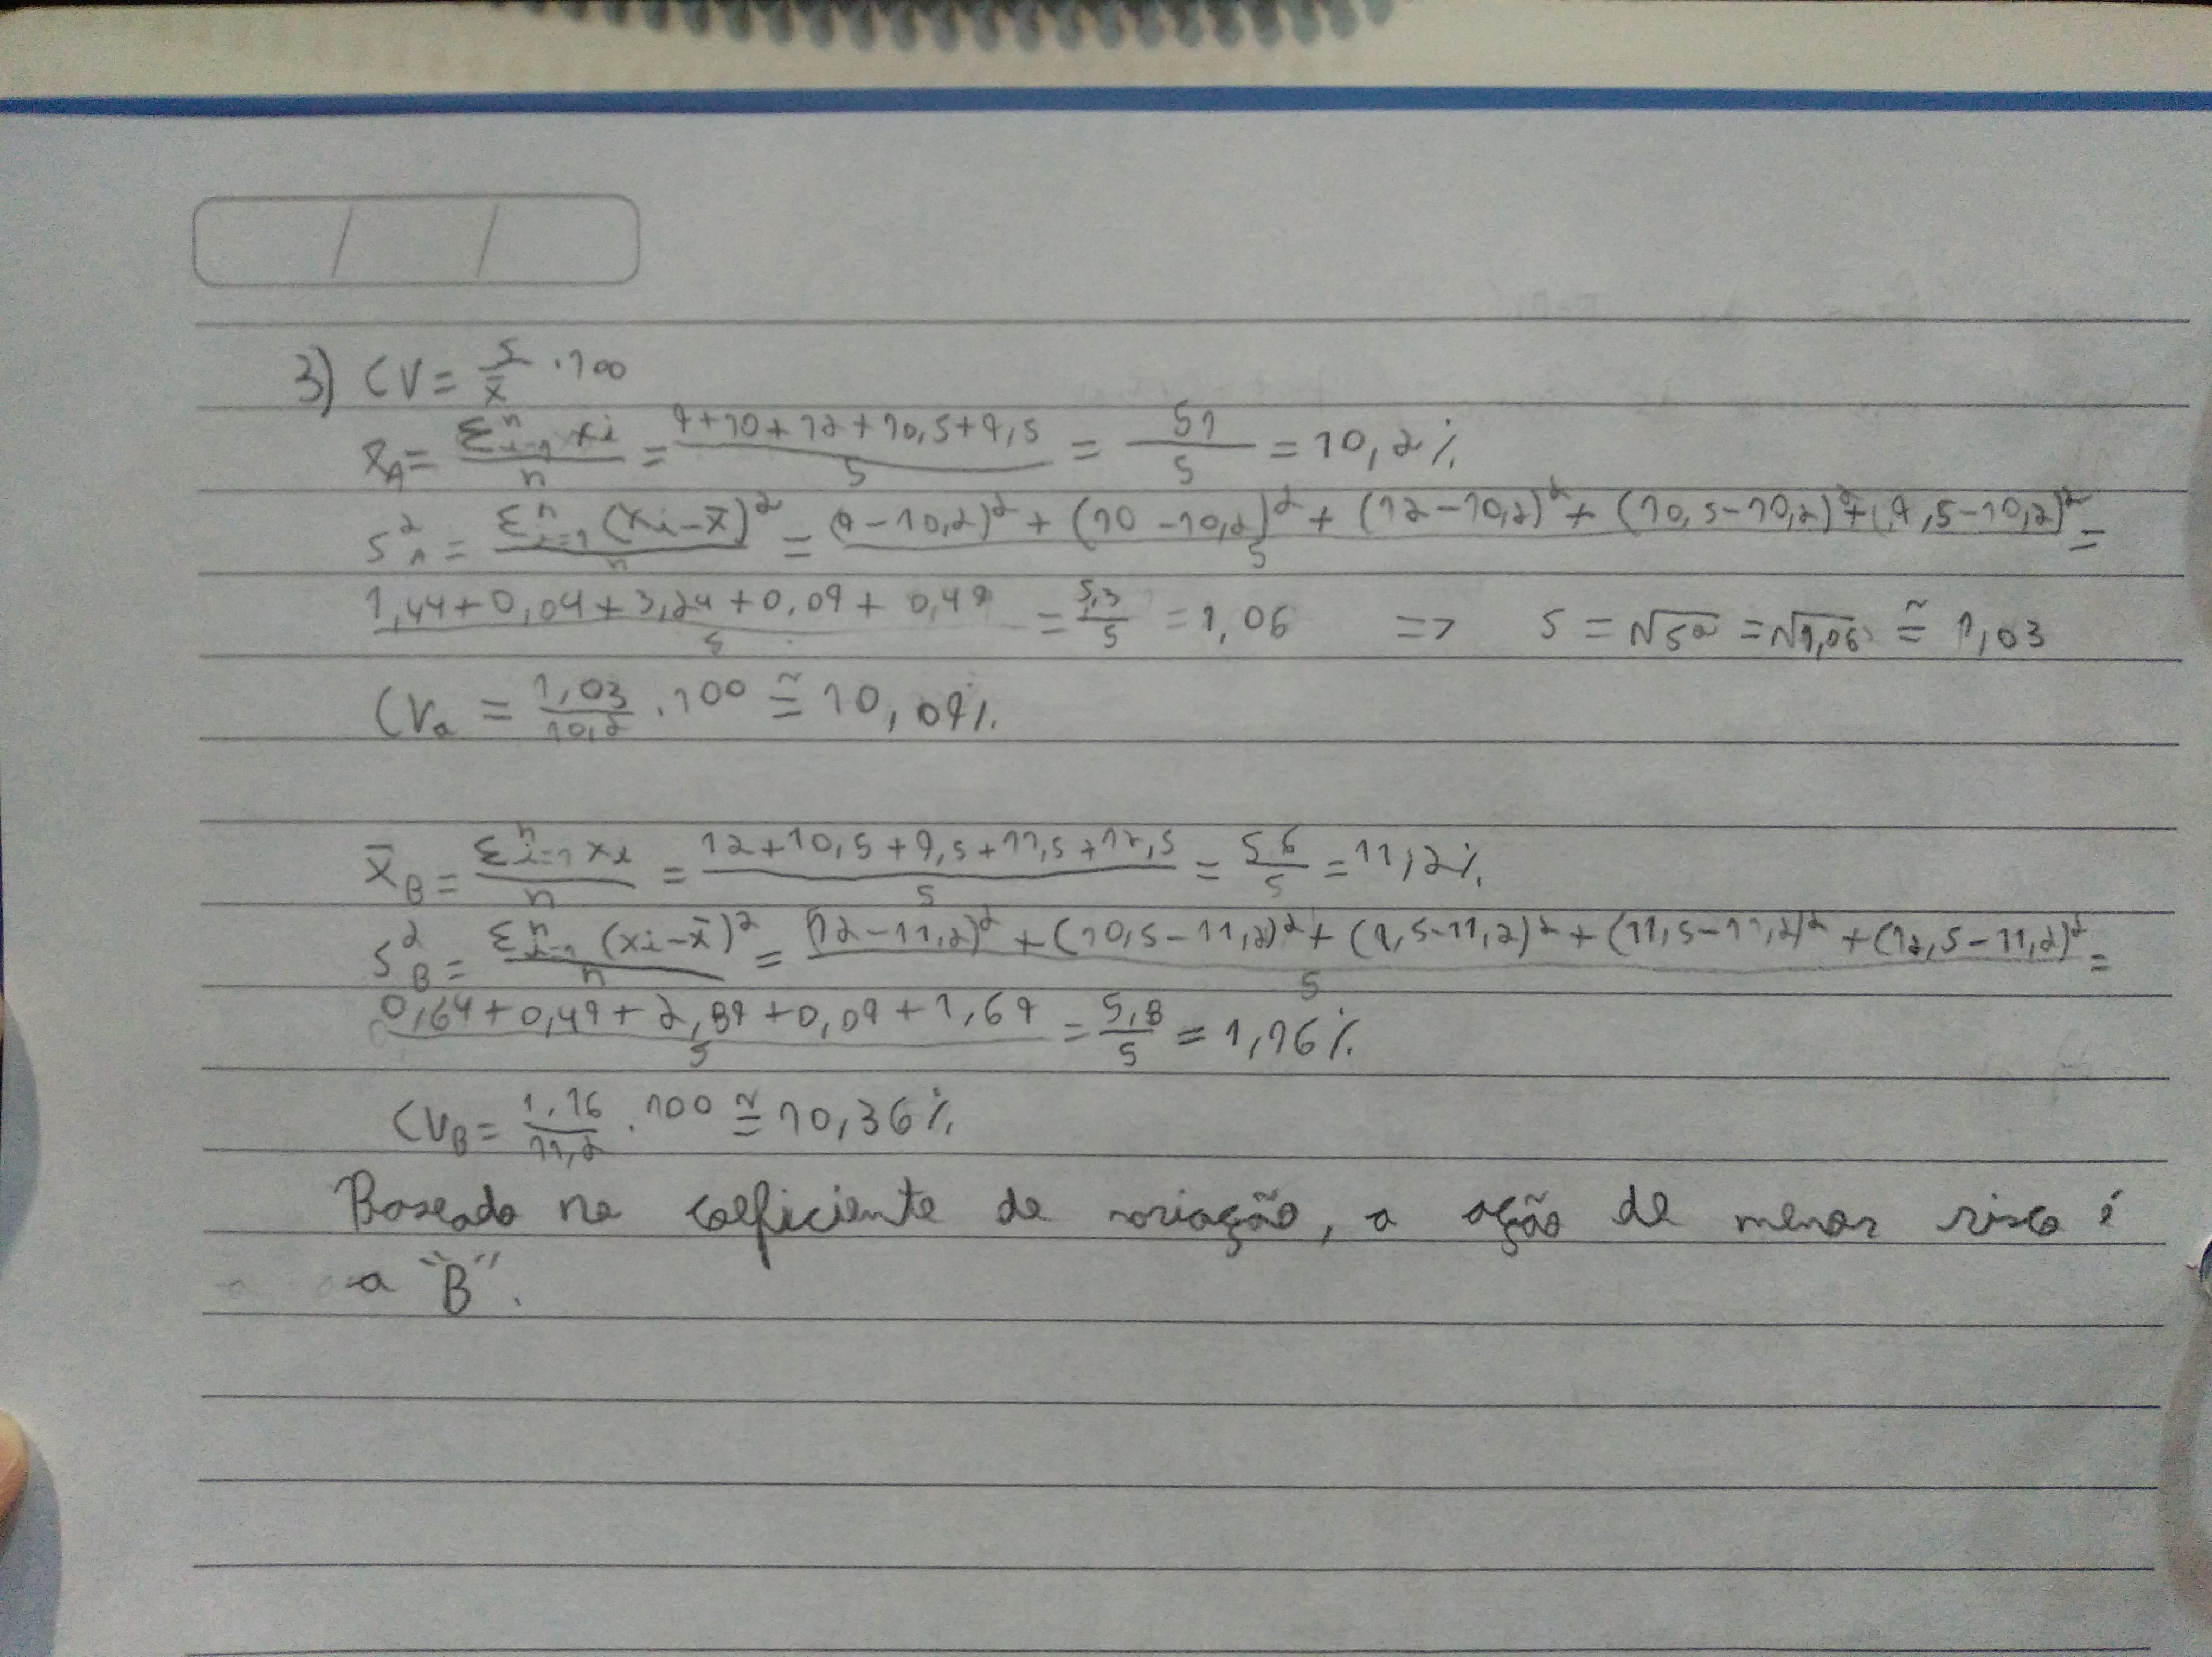 3) CV = s/x̄ · 100
x̄A = Σⁿi=1 xi / n = 9+10+12+10,5+9,5 / 5 = 51/5 = 10,2%
s²A = Σⁿi=1 (xi-x̄)² / n = (9-10,2)² + (10-10,2)² + (12-10,2)² + (10,5-10,2)² + (9,5-10,2)² / 5 =
1,44+0,04+3,24+0,09+0,49 / 5 = 5,3/5 = 1,06 => s = √s² = √1,06 ≅ 1,03
CVa = 1,03/10,2 · 100 ≅ 10,09%
x̄B = Σⁿi=1 xi / n = 12+10,5+9,5+11,5+12,5 / 5 = 56/5 = 11,2%
s²B = Σⁿi=1 (xi-x̄)² / n = (12-11,2)² + (10,5-11,2)² + (9,5-11,2)² + (11,5-11,2)² + (12,5-11,2)² / 5 =
0,64+0,49+2,89+0,09+1,69 / 5 = 5,8/5 = 1,16%
CVB = 1,16/11,2 · 100 ≅ 10,36%
Baseado no coeficiente de variação, a ação de menor risco é
a "B".